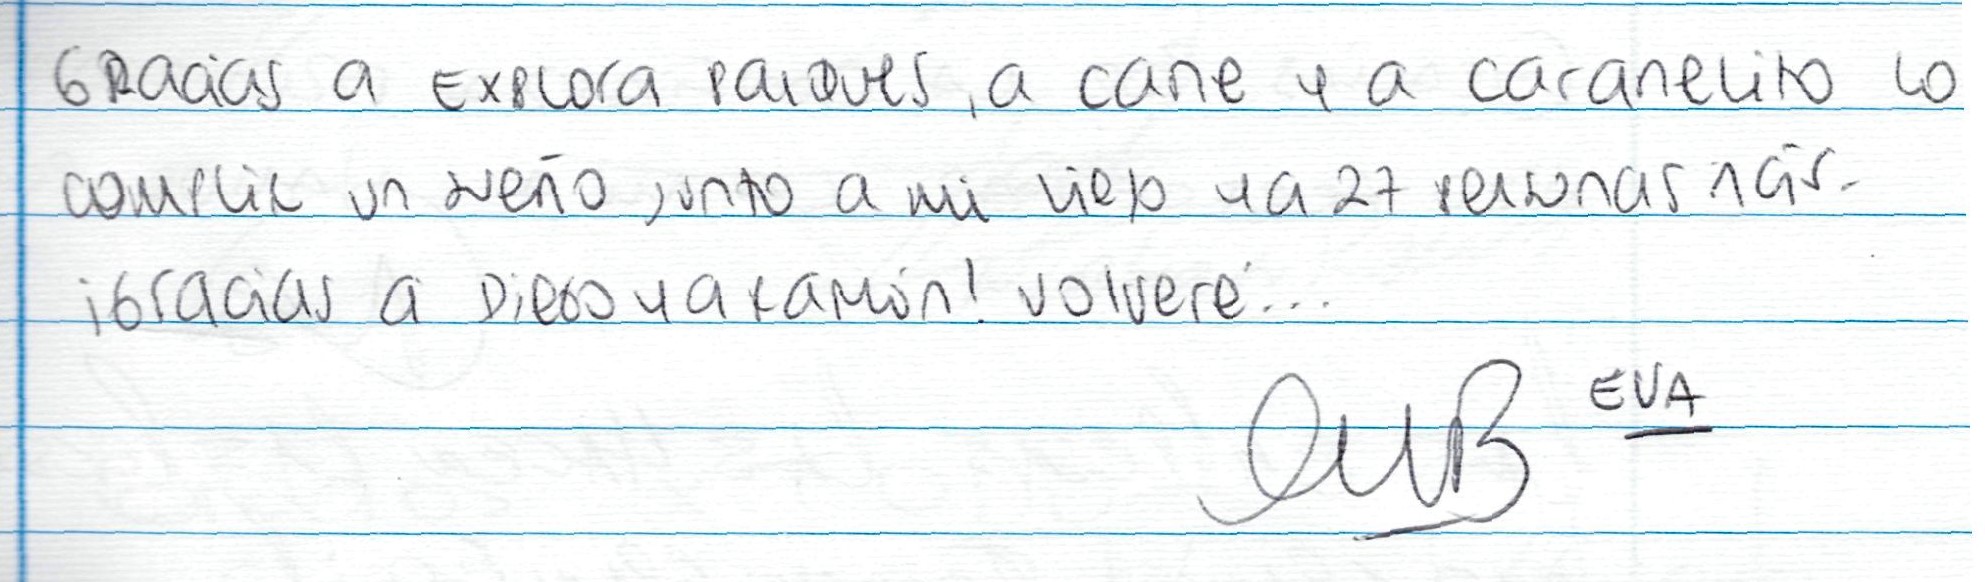 GRacias a Explora parques, a cane y a caranelito lo
cumplir un sueño junto a mi viejo y a 27 personas más.
¡Gracias a Diego y a ramón! volveré...
EVA